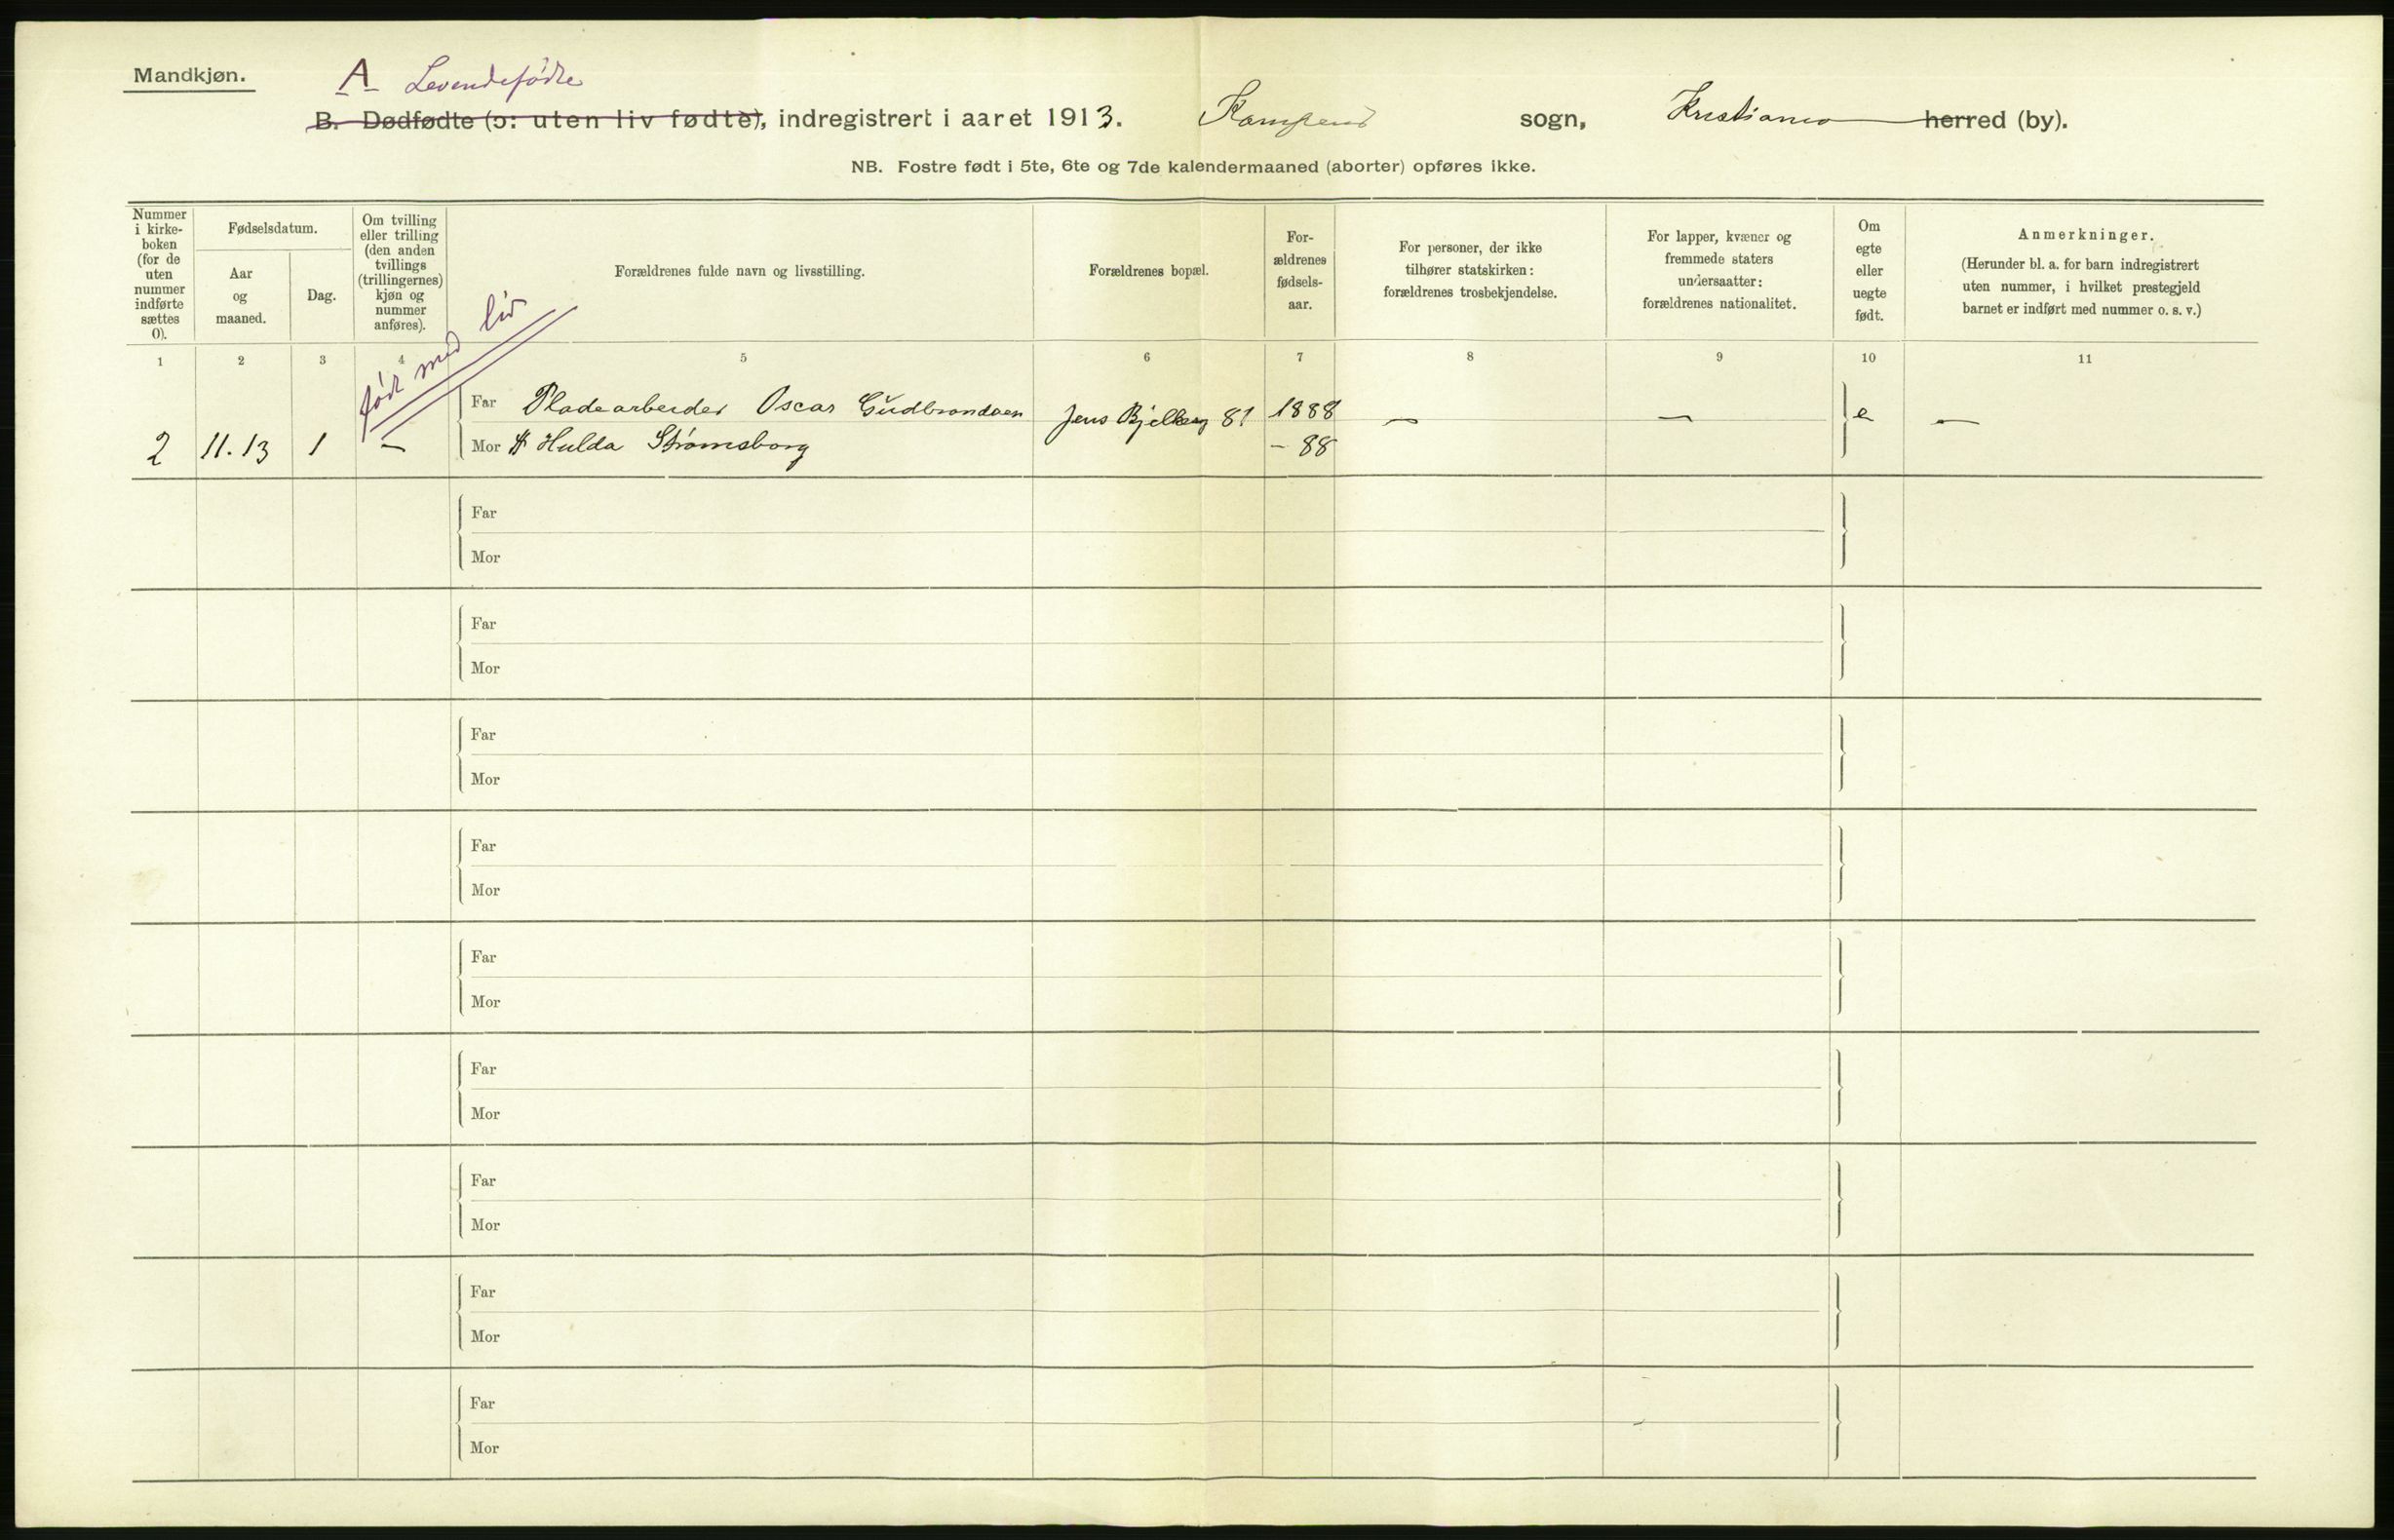 Mandkjøn.
A Levendefødte
B. Dødfødte (ɔ: uten liv fødte), indregistrert i aaret 1913. Kampens sogn, Kristiania herred (by).
NB. Fostre født i 5te, 6te og 7de kalendermaaned (aborter) opføres ikke.
Nummer
i kirke-
boken
(for de
uten
nummer
indførte
sættes
0).
Fødselsdatum.
Aar
og
maaned.
Dag.
Om tvilling
eller trilling
(den anden
tvillings
(trillingernes)
kjøn og
nummer
anføres).
Forældrenes fulde navn og livsstilling.
Forældrenes bopæl.
For-
ældrenes
fødsels-
aar.
For personer, der ikke
tilhører statskirken:
forældrenes trosbekjendelse.
For lapper, kvæner og
fremmede staters
undersaatter:
forældrenes nationalitet.
Om
egte
eller
uegte
født.
Anmerkninger.
(Herunder bl. a. for barn indregistrert
uten nummer, i hvilket prestegjeld
barnet er indført med nummer o. s. v.)
1 2 3 4 5 6 7 8 9 10 11
født med liv
Far Pladearbeider Oscar Gudbrandsen Jens Bjelkesg 81 1888 — — e —
2 11.13 1 — Mor H Hulda Strømsborg - 88
Far
Mor
Far
Mor
Far
Mor
Far
Mor
Far
Mor
Far
Mor
Far
Mor
Far
Mor
Far
Mor